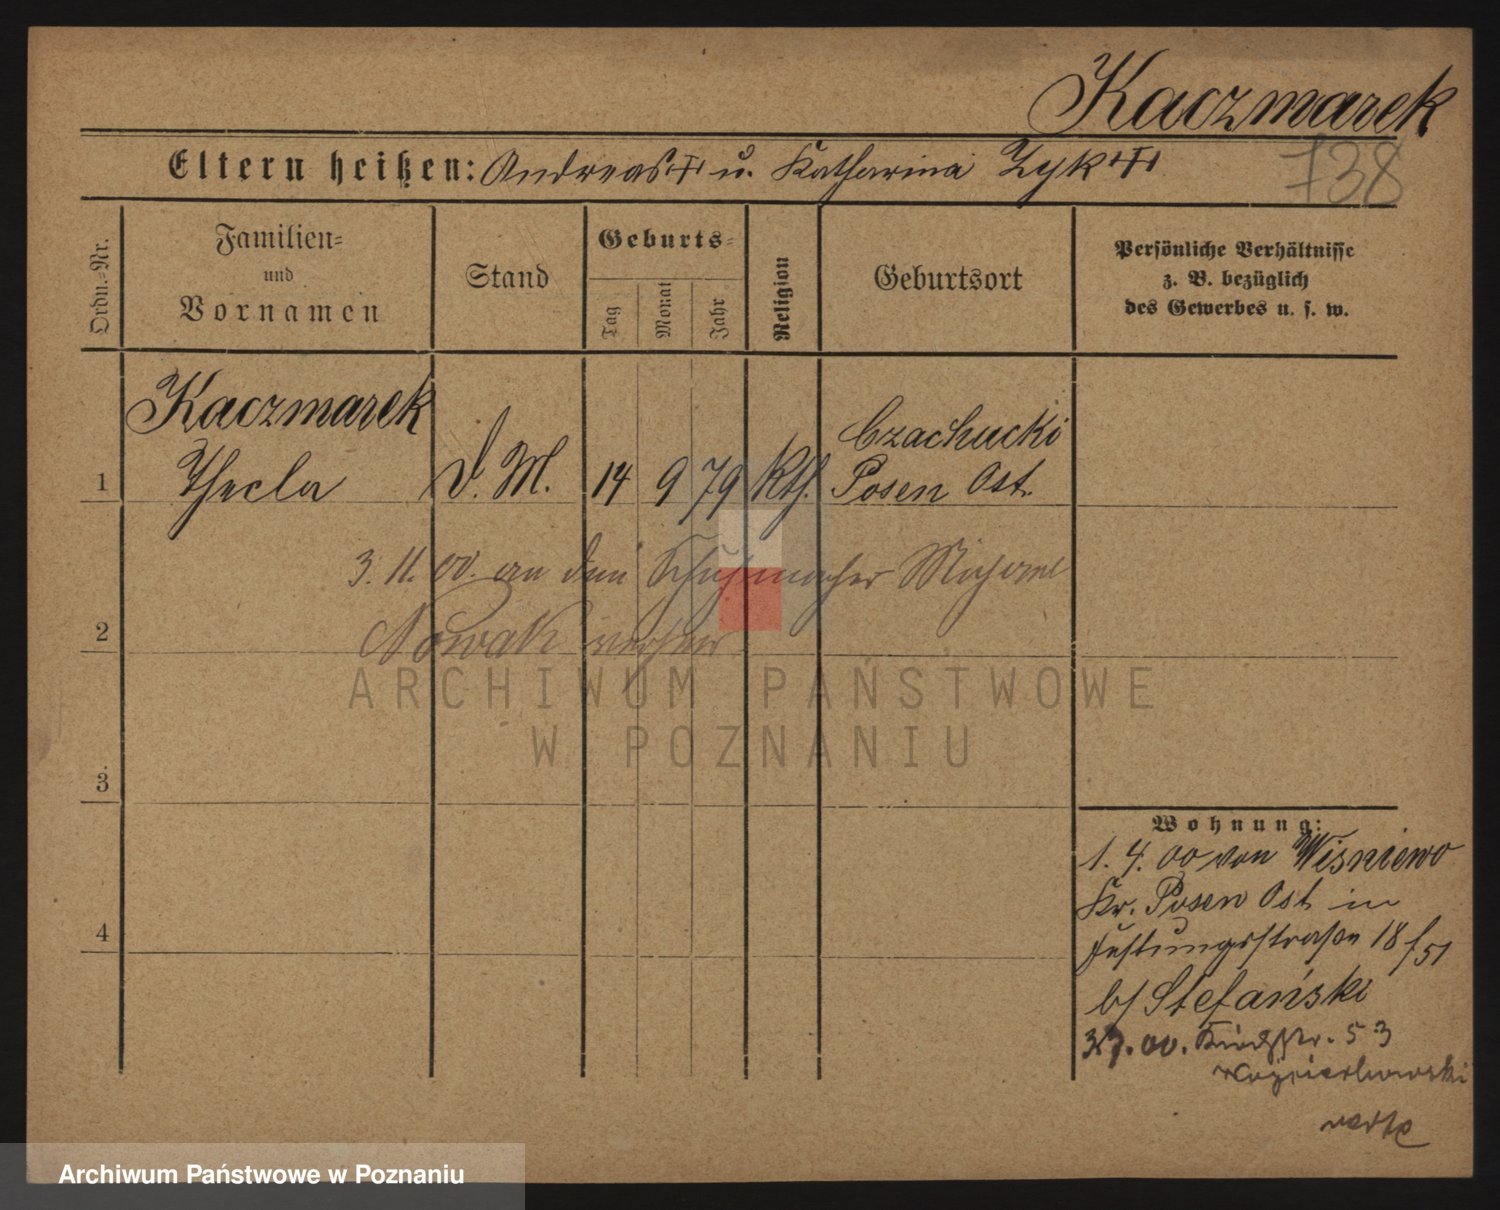 Kaczmarek
738
Eltern heißen: Andreas + u. Katharina Zyk +
Ordn.-Nr.
Familien-
und
Vornamen
Stand
Geburts-
Tag
Monat
Jahr
Religion
Geburtsort
Persönliche Verhältnisse
z. B. bezüglich
des Gewerbes u. s. w.
Kaczmarek
Czachucki
1 Thecla d. M. 14 9 79 Kth. Posen Ost.
3. 11. 00. an den Schuhmacher Michael
2 Nowak verher
ARCHIWUM PAŃSTWOWE
W POZNANIU
3
4
Wohnung:
1. 4. 00 von Wiśniewo
Kr. Posen Ost in
Festungsstraße 18 f 51
b/ Stefański
7. 00. 53
Archiwum Państwowe w Poznaniu